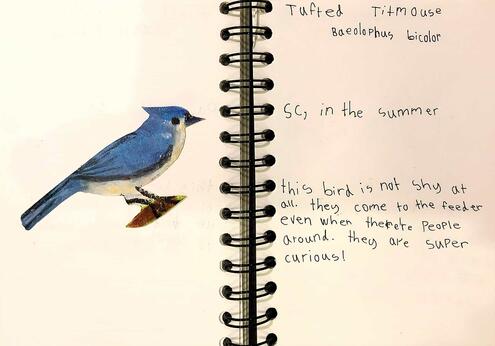 Tufted Titmouse
Baeolophus bicolor
SC, in the summer
this bird is not shy at
all. they come to the feeder
even when there people
around. they are super
curious!